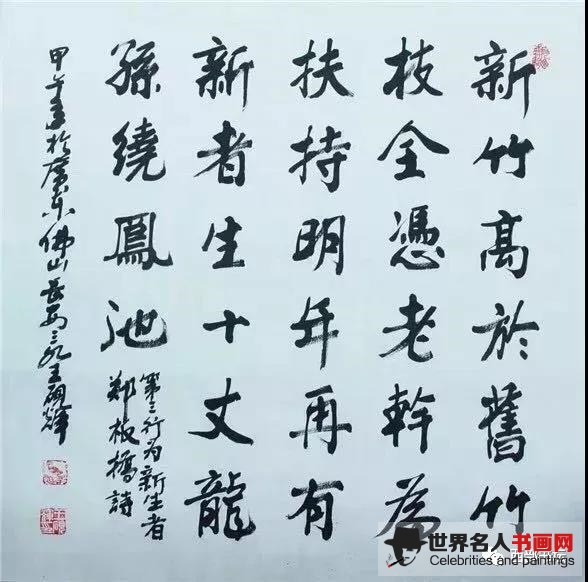 新竹高於舊竹
枝全憑老幹為
扶持明年再有
新者生十丈龍
孫繞鳳池
第三行为新生者
郑板橋詩
甲午 於廣东佛山
世界名人书画网
Celebrities and paintings